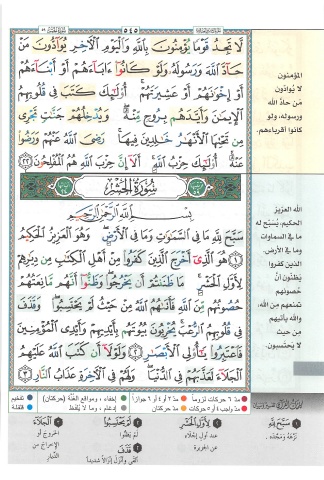 ٥٤٥
لَّا تَجِدُ قَوْمًا يُؤْمِنُونَ بِاللَّهِ وَالْيَوْمِ الْآخِرِ يُوَآدُّونَ مَنْ
حَآدَّ اللَّهَ وَرَسُولَهُ وَلَوْ كَانُوٓا ءَابَآءَهُمْ أَوْ أَبْنَآءَهُمْ
أَوْ إِخْوَٰنَهُمْ أَوْ عَشِيرَتَهُمْ ۚ أُو۟لَٰٓئِكَ كَتَبَ فِى قُلُوبِهِمُ
الْإِيمَٰنَ وَأَيَّدَهُم بِرُوحٍ مِّنْهُ ۖ وَيُدْخِلُهُمْ جَنَّٰتٍ تَجْرِى
مِن تَحْتِهَا الْأَنْهَٰرُ خَٰلِدِينَ فِيهَا ۚ رَضِىَ اللَّهُ عَنْهُمْ وَرَضُوا
عَنْهُ ۚ أُو۟لَٰٓئِكَ حِزْبُ اللَّهِ ۚ أَلَآ إِنَّ حِزْبَ اللَّهِ هُمُ الْمُفْلِحُونَ ٢٢
سُورَةُ الْحَشْرِ
بِسْمِ اللَّهِ الرَّحْمَٰنِ الرَّحِيمِ
سَبَّحَ لِلَّهِ مَا فِى السَّمَٰوَٰتِ وَمَا فِى الْأَرْضِ ۖ وَهُوَ الْعَزِيزُ الْحَكِيمُ
١ هُوَ الَّذِىٓ أَخْرَجَ الَّذِينَ كَفَرُوا مِنْ أَهْلِ الْكِتَٰبِ مِن دِيَٰرِهِمْ
لِأَوَّلِ الْحَشْرِ ۚ مَا ظَنَنتُمْ أَن يَخْرُجُوا ۖ وَظَنُّوٓا أَنَّهُم مَّانِعَتُهُمْ
حُصُونُهُم مِّنَ اللَّهِ فَأَتَىٰهُمُ اللَّهُ مِنْ حَيْثُ لَمْ يَحْتَسِبُوا ۖ وَقَذَفَ
فِى قُلُوبِهِمُ الرُّعْبَ ۚ يُخْرِبُونَ بُيُوتَهُم بِأَيْدِيهِمْ وَأَيْدِى الْمُؤْمِنِينَ
فَاعْتَبِرُوا يَٰٓأُو۟لِى الْأَبْصَٰرِ ٢ وَلَوْلَآ أَن كَتَبَ اللَّهُ عَلَيْهِمُ
الْجَلَآءَ لَعَذَّبَهُمْ فِى الدُّنْيَا ۖ وَلَهُمْ فِى الْآخِرَةِ عَذَابُ النَّارِ ٣
المؤمنون
لا يُوادّون
من حادّ الله
ورسوله، ولو
كانوا أقرباءهم.
الله العزيز
الحكيم، يُسبّح له
ما في السماوات
وما في الأرض
الذين كفروا
يظنّون أنّ
حُصونهم
تمنعهم من الله،
والله يأتيهم
من حيث
لا يحتسبون.
مدّ ٦ حركات لزوماً
مدّ ٢ أو ٤ أو ٦ جوازاً
إخفاء، ومواقع الغُنّة (حركتان)
تفخيم
مدّ واجب ٤ أو ٥ حركات
مدّ حركتان
إدغام، وما لا يُلفظ
قلقلة
سَبَّحَ لِلَّهِ
نزّهه ومجّده.
لِأَوَّلِ الْحَشْرِ
عند أول إجلاء
عن الجزيرة
لَمْ يَحْتَسِبُوا
لم يظنّوا
قَذَفَ
ألقى وأنزل إنزالاً شديداً
الْجَلَاءَ
الخروج أو
الإخراج من
الدّيار